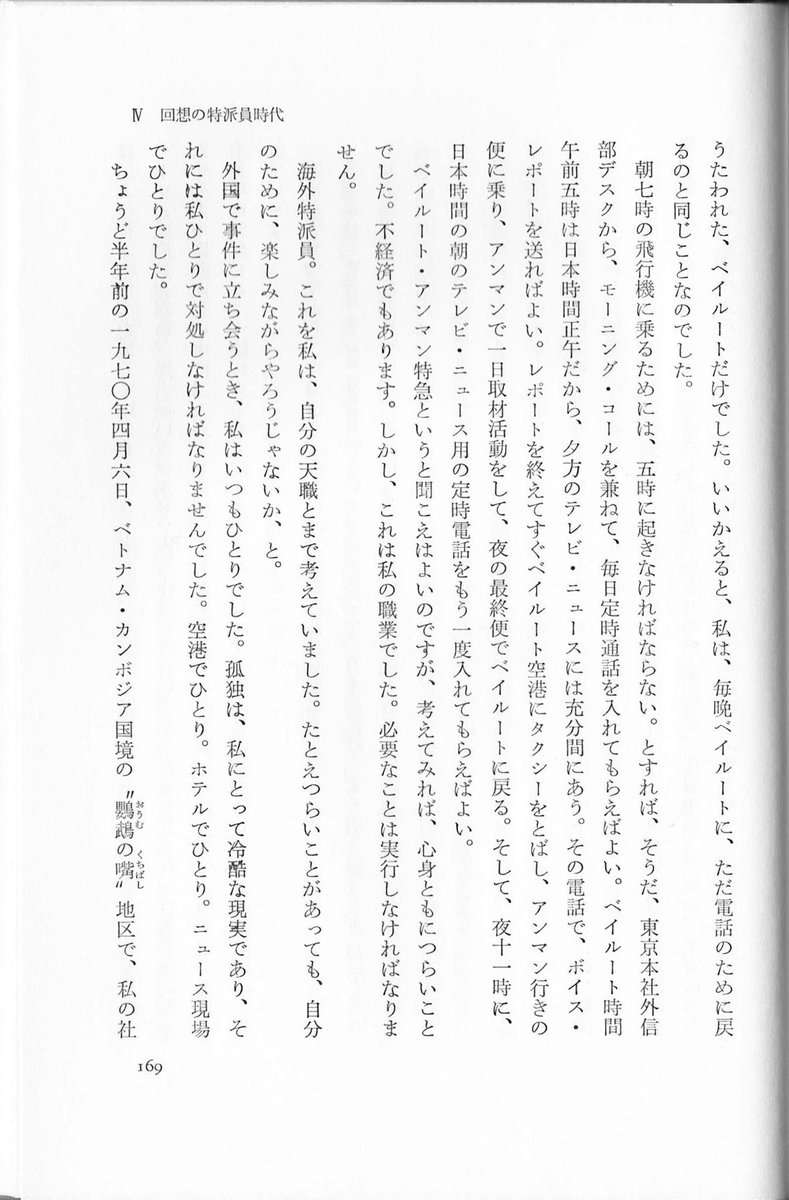 Ⅳ　回想の特派員時代
うたわれた、ベイルートだけでした。いいかえると、私は、毎晩ベイルートに、ただ電話のために戻
るのと同じことなのでした。
　朝七時の飛行機に乗るためには、五時に起きなければならない。とすれば、そうだ、東京本社外信
部デスクから、モーニング・コールを兼ねて、毎日定時通話を入れてもらえばよい。ベイルート時間
午前五時は日本時間正午だから、夕方のテレビ・ニュースには充分間にあう。その電話で、ボイス・
レポートを送ればよい。レポートを終えてすぐベイルート空港にタクシーをとばし、アンマン行きの
便に乗り、アンマンで一日取材活動をして、夜の最終便でベイルートに戻る。そして、夜十一時に、
日本時間の朝のテレビ・ニュース用の定時電話をもう一度入れてもらえばよい。
　ベイルート・アンマン特急というと聞こえはよいのですが、考えてみれば、心身ともにつらいこと
でした。不経済でもあります。しかし、これは私の職業でした。必要なことは実行しなければなりま
せん。
　海外特派員。これを私は、自分の天職とまで考えていました。たとえつらいことがあっても、自分
のために、楽しみながらやろうじゃないか、と。
　外国で事件に立ち会うとき、私はいつもひとりでした。孤独は、私にとって冷酷な現実であり、そ
れには私ひとりで対処しなければなりませんでした。空港でひとり。ホテルでひとり。ニュース現場
でひとりでした。
　ちょうど半年前の一九七〇年四月六日、ベトナム・カンボジア国境の〝鸚鵡の嘴〟地区で、私の社
おうむ　くちばし
169